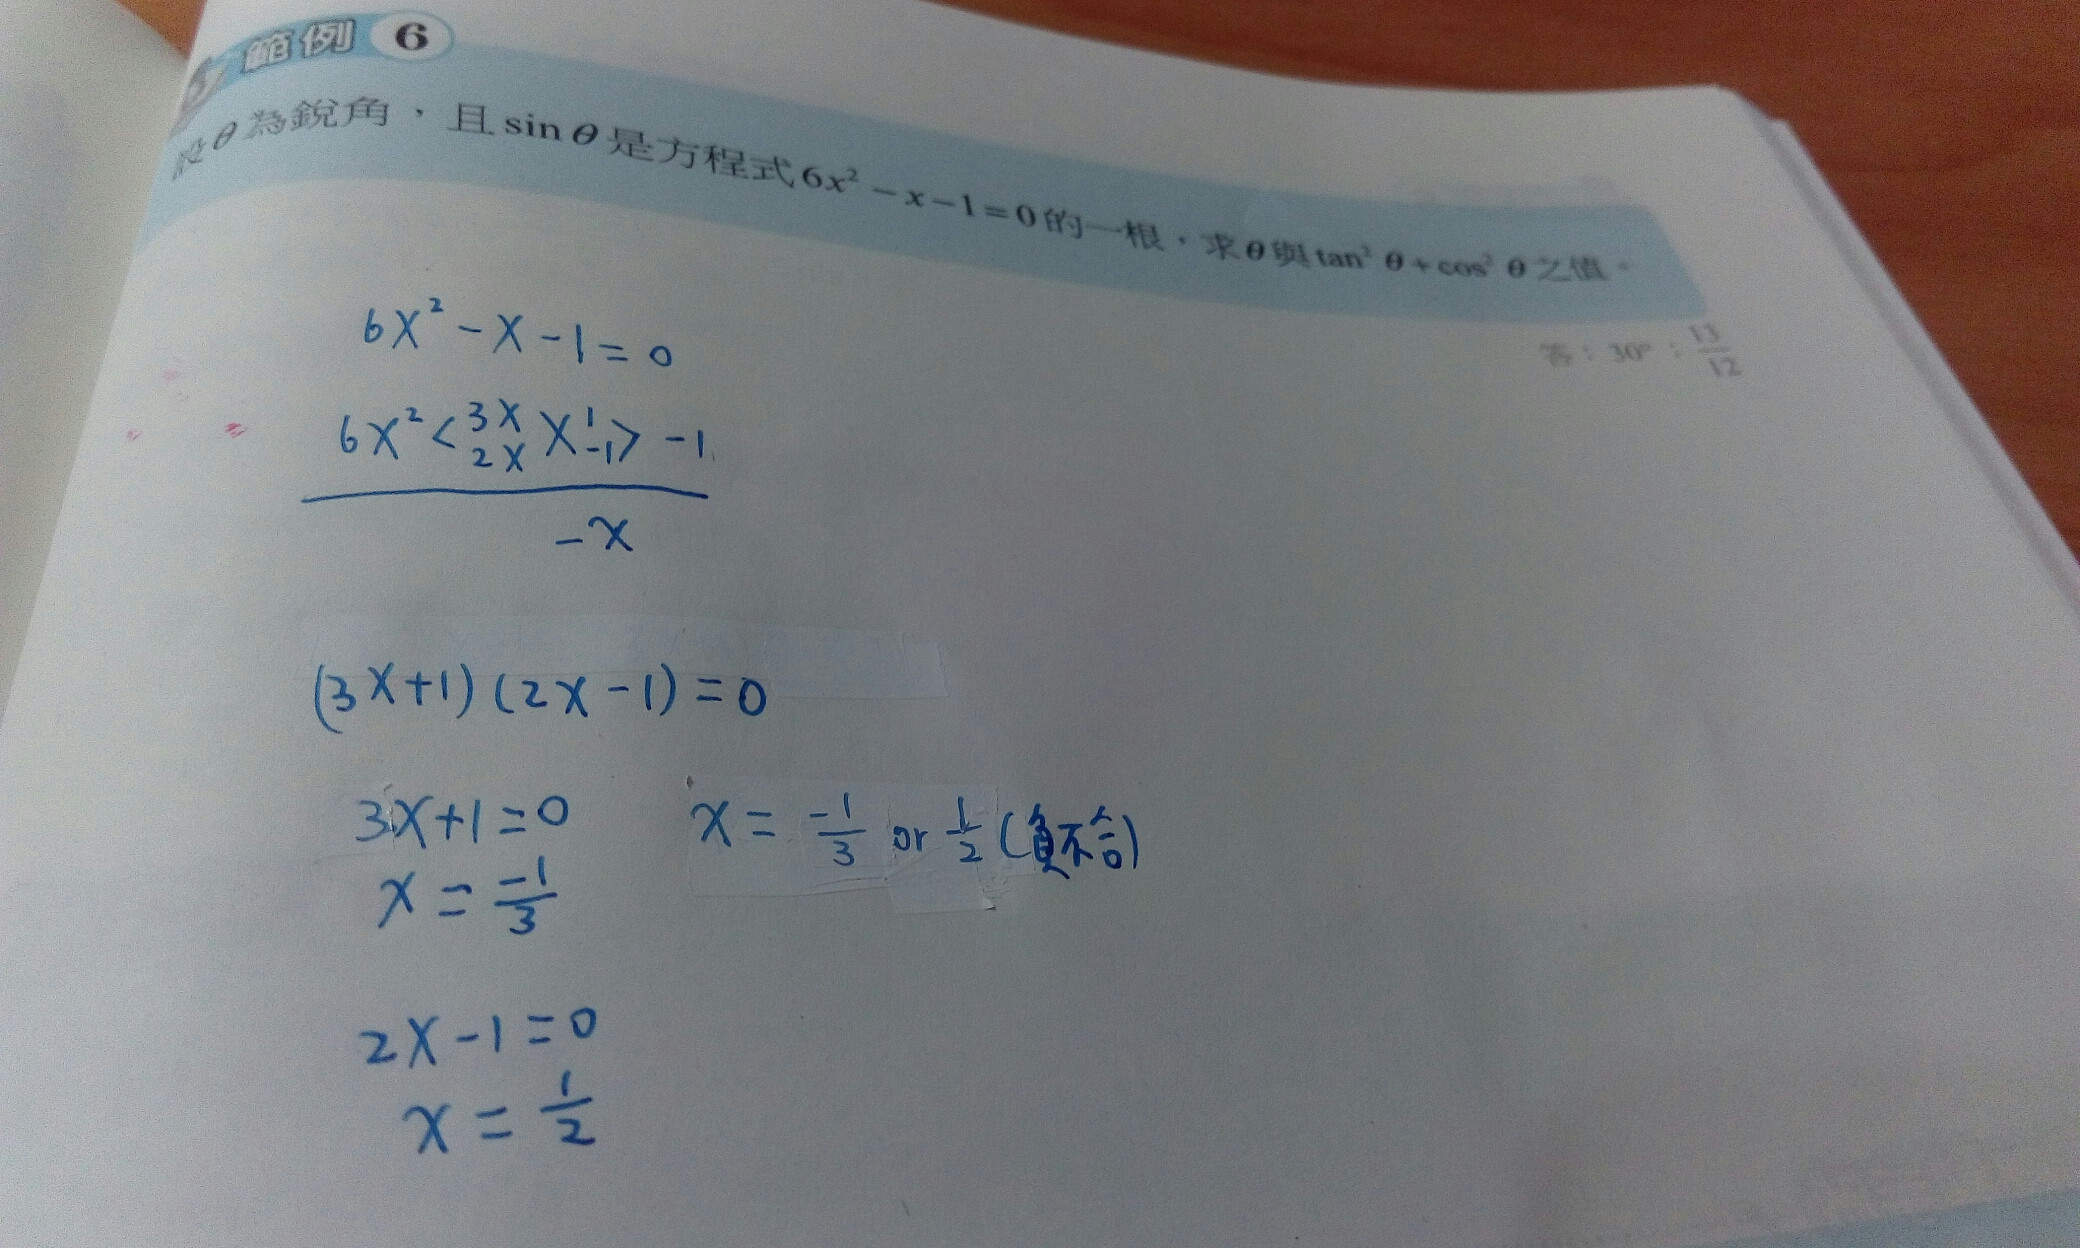 範例 6
設θ為銳角，且 sin θ 是方程式 6x² − x − 1 = 0 的一根，求θ與 tan² θ + cos² θ 之值。
答：30°；13/12
6x² - x - 1 = 0
6x² < 3x 2x X 1 -1 > -1
-x
(3x+1)(2x-1) = 0
3x+1=0
x = -1/3 or 1/2 (負不合)
x = -1/3
2x-1=0
x = 1/2